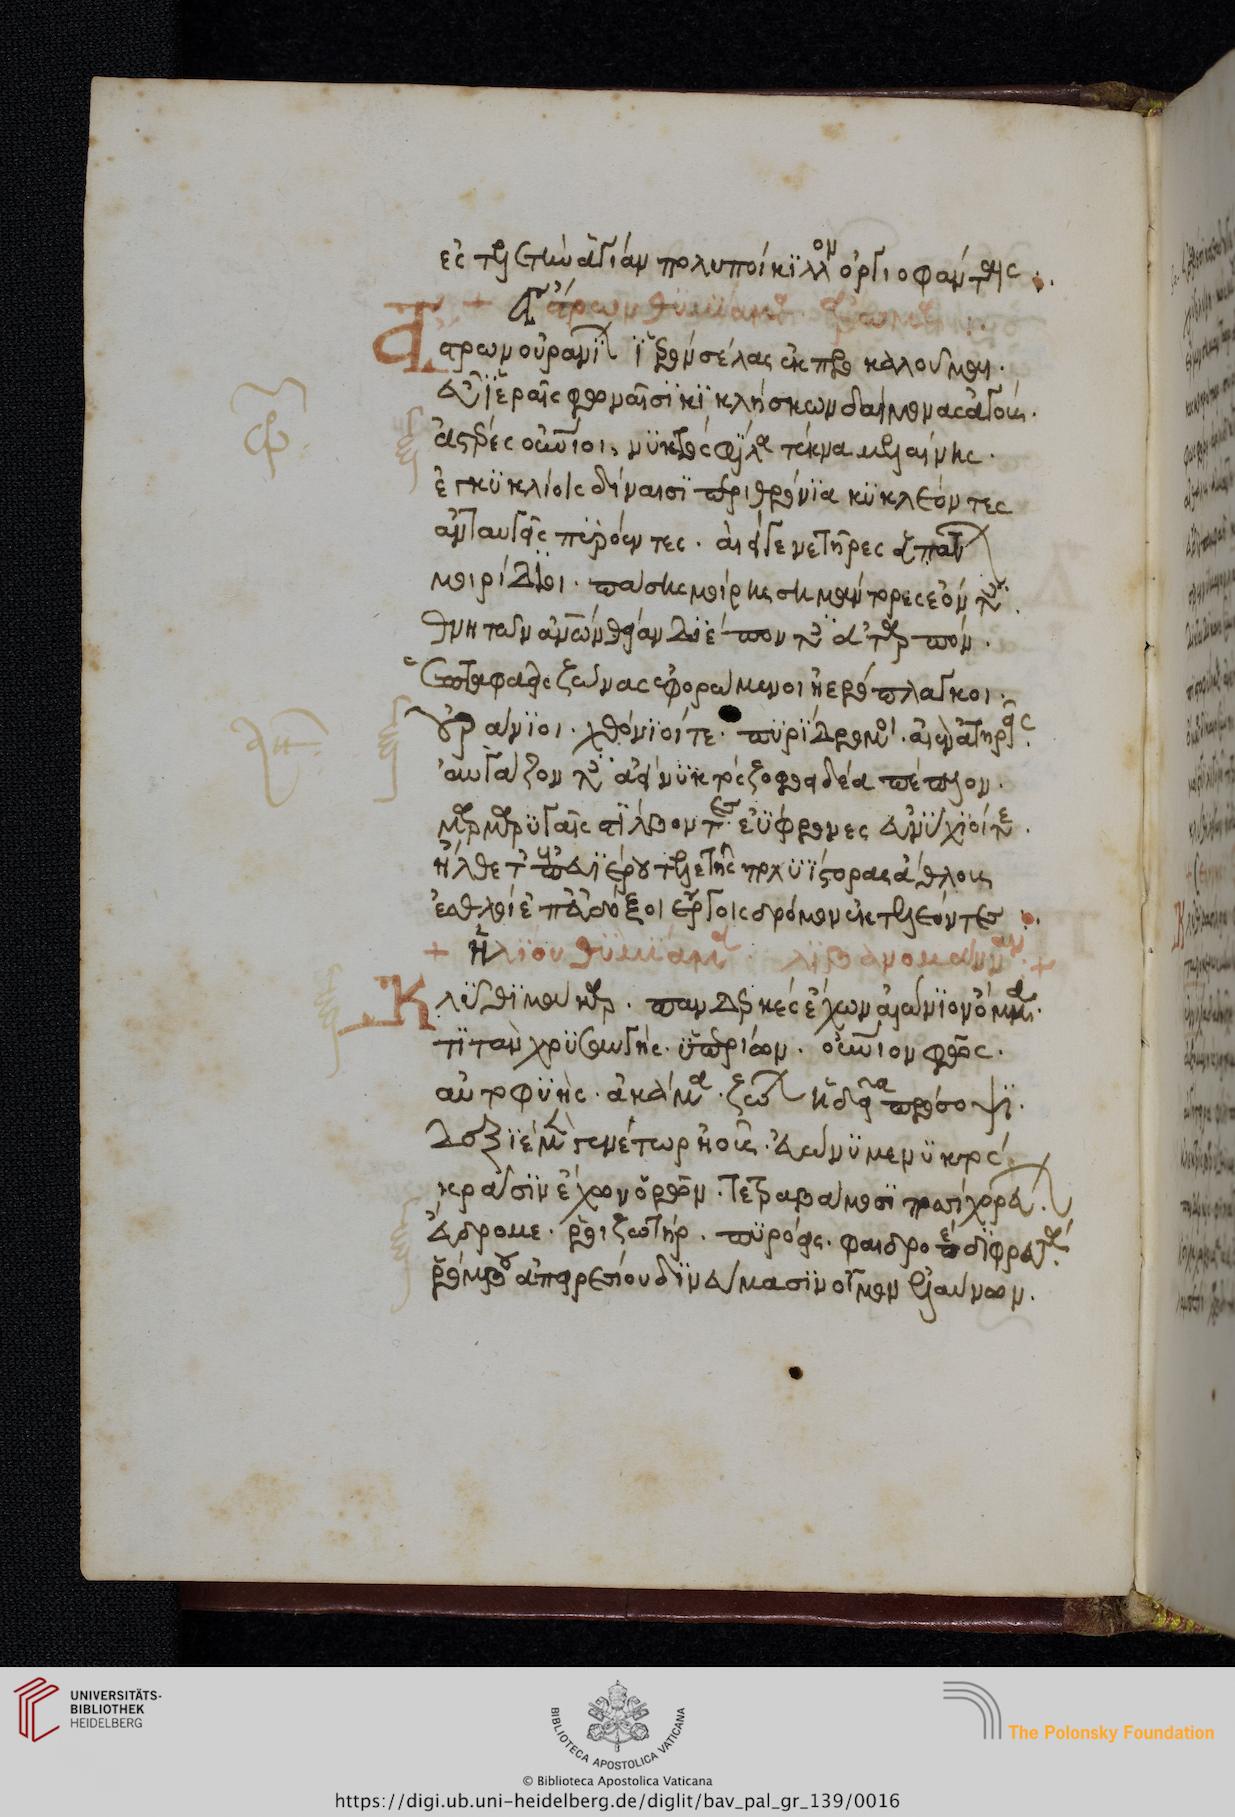 ἐς τελετὴν ἁγίαν πολυποίκιλλον ὀργιοφάνταις:
+ ἄστρων θυμίαμα. ἀρώματα:
Ἄστρων οὐρανίων ἱερὸν σέλας ἐκπροκαλοῦμαι.
εὐϊέραις φωναῖσι κικλήσκων δαίμονας ἁγνούς.
ἀστέρες οὐράνιοι, νυκτὸς φίλα τέκνα μελαίνης.
ἐγκυκλίοις δίναισι περιθρόνια κυκλέοντες
ἀνταυγεῖς πυρόεντες. ἀεὶ γενετῆρες ἁπάντων
μοιρίδιοι. πάσης μοίρης σημάντορες ἐόντες.
θνητῶν ἀνθρώπων θείαν διέποντες ἀταρπόν.
ἑπταφαεῖς ζώνας ἐφορώμενοι ἠερόπλαγκτοι.
οὐράνιοι. χθόνιοί τε. πυρίδρομοι. αἰὲν ἀτειρεῖς.
αὐγάζοντες ἀεὶ νυκτὸς ζοφοειδέα πέπλον.
μαρμαρυγαῖς στίλβοντες εὔφρονες ἐννύχιοί τε.
ἔλθετ' ἐπ' εὐϊέρου τελετῆς πολυΐστορας ἄθλους
ἐσθλὸν ἐπ' εὐδόξοι ἔργοις δρόμον ἐκτελέοντες:
+ Ἡλίου θυμίαμα. λιβανομάνναν +
Κλῦθι μάκαρ. πανδερκὲς ἔχων αἰώνιον ὄμμα.
τιτὰν χρυσαυγής. ὑπερίων. οὐράνιον φῶς.
αὐτοφυής. ἀκάμα. ζώων ἡδεῖα πρόσοψι.
δεξιὲ μὲν γενέτωρ ἠοῦς. εὐώνυμε νυκτός.
κρᾶσιν ἔχων ὡρῶν. τετραβάμοσι ποσσὶ χορεύων.
εὔδρομε. ῥοιζωτήρ. πυρόεις. φαιδρωπέ διφρευτά.
ῥόμβου ἀπειρεσίου δινεύμασιν οἶμον ἐλαύνων.
UNIVERSITÄTS-
BIBLIOTHEK
HEIDELBERG
BIBLIOTECA APOSTOLICA VATICANA
The Polonsky Foundation
© Biblioteca Apostolica Vaticana
https://digi.ub.uni-heidelberg.de/diglit/bav_pal_gr_139/0016